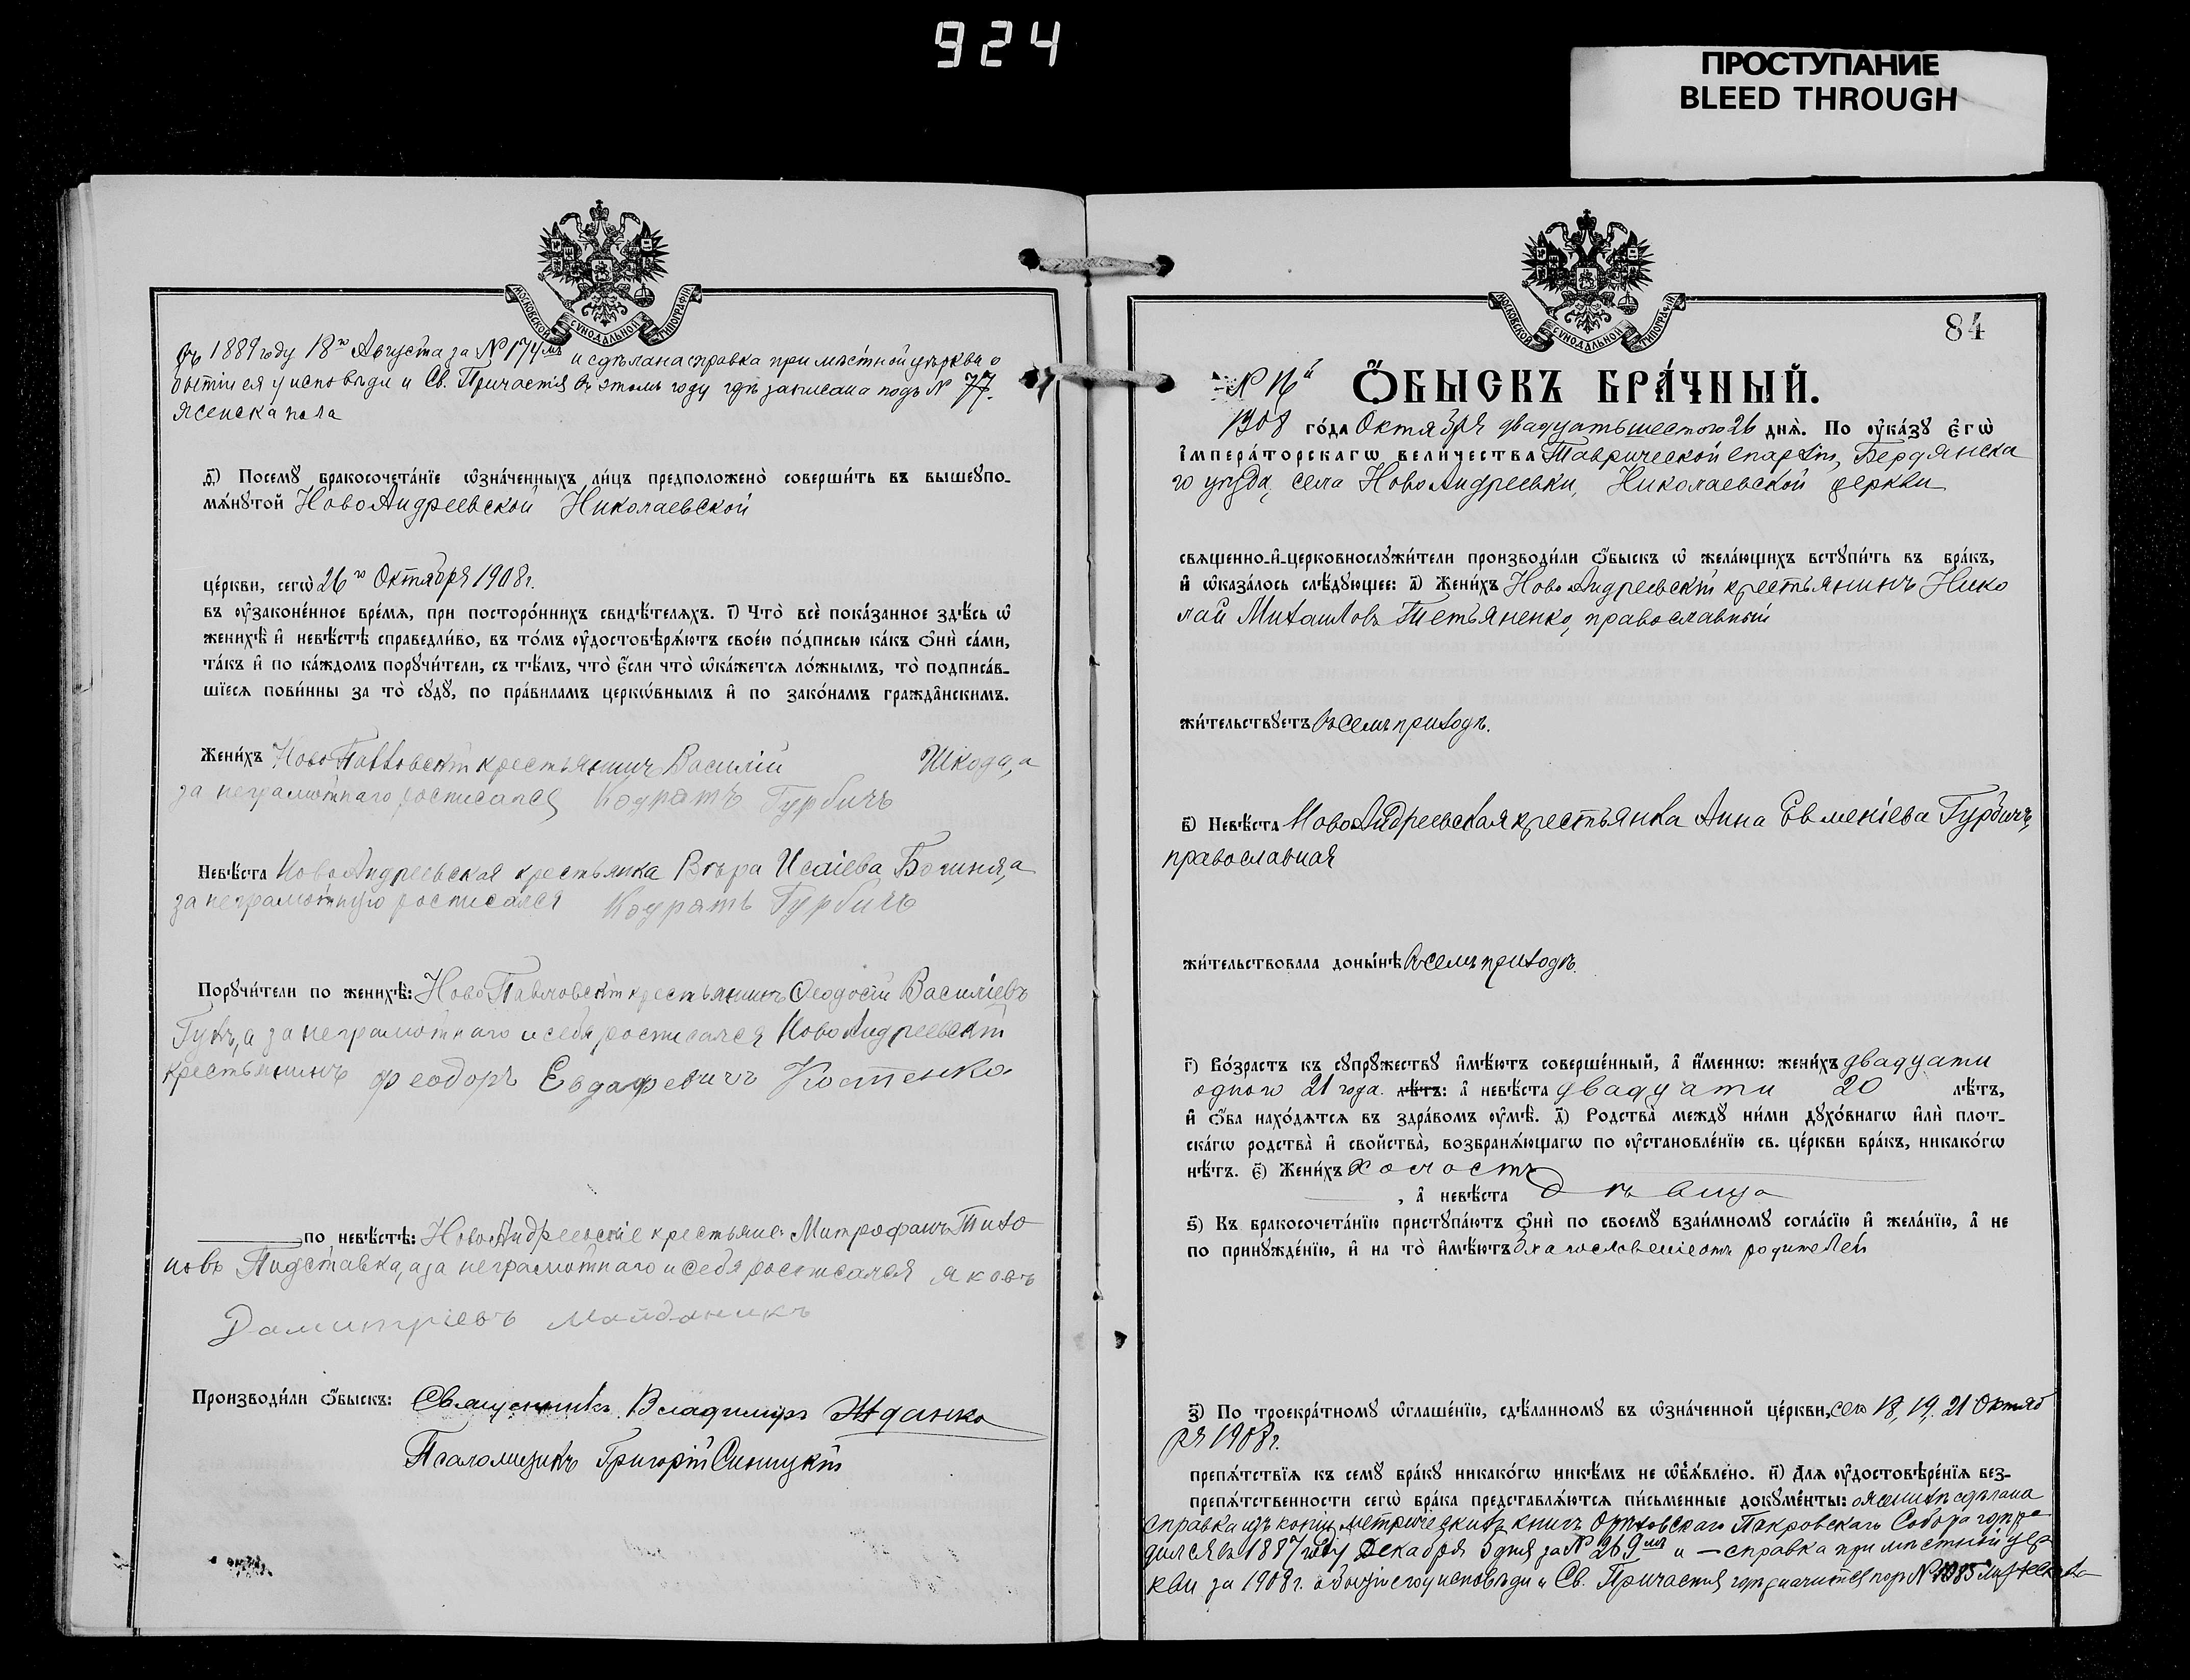 924
ПРОСТУПАНИЕ
BLEED THROUGH
МОСКОВСКОЙ СѴНОДАЛЬНОЙ ТИПОГРАФІИ
въ 1889 году 18го Августа за № 174мъ и сдѣлана справка при мѣстной церкви о
бытіи ея у исповѣди и Св. Причастія въ этомъ году гдѣ записана подъ № 77.
женска пола
д҃) Посемꙋ бракосочета́нїе ѡ҆зна́ченныхъ ли́цъ предположено̀ соверши́ть въ вышеꙋпо-
мѧ́нꙋтой НовоАндреевской Николаевской
це́ркви, сегѡ̀ 26го Октября 1908 г.
въ ᲂу҆законе́нное вре́мѧ, при посторо́ннихъ свидѣ́телѧхъ. і҃) Что̀ всѐ пока́занное здѣ́сь ѡ҆
женихѣ̀ и҆ невѣ́стѣ справедли́во, въ то́мъ ᲂу҆достовѣрѧ́ютъ свое́ю по́дписью ка́къ ѻ҆нѝ са́ми,
та́къ и҆ по ка́ждомъ порꙋчи́тели, съ тѣ́мъ, что̀ є҆́сли что̀ ѡ҆ка́жетсѧ ло́жнымъ, то̀ подписа́в-
шїесѧ пови́нны за то̀ сꙋдꙋ̀, по пра́виламъ церкѡ́внымъ и҆ по зако́намъ гражда̑нскимъ.
Жени́хъ НовоПавловскій крестьянинъ Василій Шкода, а
за неграмотнаго росписался Кодратъ Гурбичъ
Невѣ́ста НовоАндреевская крестьянка Вѣра Исаіева Богиня, а
за неграмотную росписался Кодратъ Гурбичъ
Порꙋчи́тели по женихѣ̀: НовоПавловскій крестьянинъ Ѳеодосій Василіевъ
а за неграмотнаго и себя росписался НовоАндреевскій
крестьянинъ феодоръ Костенко
по невѣ́стѣ: НовоАндреевскіе крестьяне: Митрофанъ Тихо
новъ Пидставка, а за неграмотнаго и себя росписался яковъ
Дамитріевъ майданикъ
Производи́ли ѻ҆́быскъ: Священникъ Владимиръ Жданко
Псаломщикъ Григорій Синицкій
МОСКОВСКОЙ СѴНОДАЛЬНОЙ ТИПОГРАФІИ
84
№ 16й
Ѻ҆́БЫСКЪ БРА́ЧНЫЙ.
1908 го́да Октября двадцать шестого 26 днѧ̀. По ᲂу҆ка́зꙋ Є҆гѡ̀
І҆мпера́торскагѡ Вели́чества Таврической епархіи, Бердянска
го уѣзда, села НовоАндреевки, Николаевской церкви
свѧщенно-и҆-церковнослꙋжи́тели производи́ли ѻ҆́быскъ ѡ҆ жела́ющихъ встꙋпи́ть въ бра́къ,
и҆ ѡ҆каза́лось слѣ́дꙋющее: а҃) Жени́хъ НовоАндреевскій крестьянинъ Нико
лай Михаиловъ Тетьяненко, православный
жи́тельствꙋетъ въ семъ приходѣ.
в҃) Невѣ́ста НовоАндреевская крестьянка Анна Евменіева Гурбичъ,
православная
жи́тельствовала доны́нѣ въ семъ приходѣ.
г҃) Во́зрастъ къ сꙋпрꙋ́жествꙋ и҆мѣ́ютъ соверше́нный, а҆ и҆́меннѡ: жени́хъ двадцати
одного 21 года. лѣ́тъ: а҆ невѣ́ста двадцати 20 лѣ́тъ,
и҆ ѻ҆́ба нахо́дѧтсѧ въ здра́вомъ ᲂу҆мѣ̀. д҃) Родства̀ междꙋ ни́ми дꙋхо́внагѡ и҆лѝ плот-
ска́гѡ родства̀ и҆ свойства̀, возбранѧ́ющагѡ по ᲂу҆становле́нїю св. це́ркви бра́къ, никако́гѡ
нѣ́тъ. є҃) Жени́хъ холостъ
, а҆ невѣ́ста дѣвица
ѕ҃) Къ бракосочета́нїю пристꙋпа́ютъ ѻ҆нѝ по своемꙋ̀ взаи́мномꙋ согла́сїю и҆ жела́нїю, а҆ не
по принꙋжде́нїю, и҆ на то̀ и҆мѣ́ютъ благословеніе отъ родителей
з҃) По троекра́тномꙋ ѡ҆глаше́нїю, сдѣ́ланномꙋ въ ѡ҆зна́ченной це́ркви, сего 18, 19, 21 Октяб
ря 1908 г.
препѧ́тствїѧ къ семꙋ̀ бра́кꙋ никако́гѡ никѣ́мъ не ѡ҆б̾ѧ́влено. и҃) Длѧ ᲂу҆достовѣре́нїѧ без-
препѧ́тственности сегѡ̀ бра́ка представлѧ́ютсѧ пи́сьменные докꙋме́нты: о женихѣ сдѣлана
справка изъ копіи метрическихъ книгъ Орѣховскаго Покровскаго Собора гдѣ ро
дился въ 1887 году Декабря 5 дня за № 269мъ и — справка при мѣстной цер
кви за 1908 г. о бытіи его у исповѣди и Св. Причастія гдѣ значится подъ №